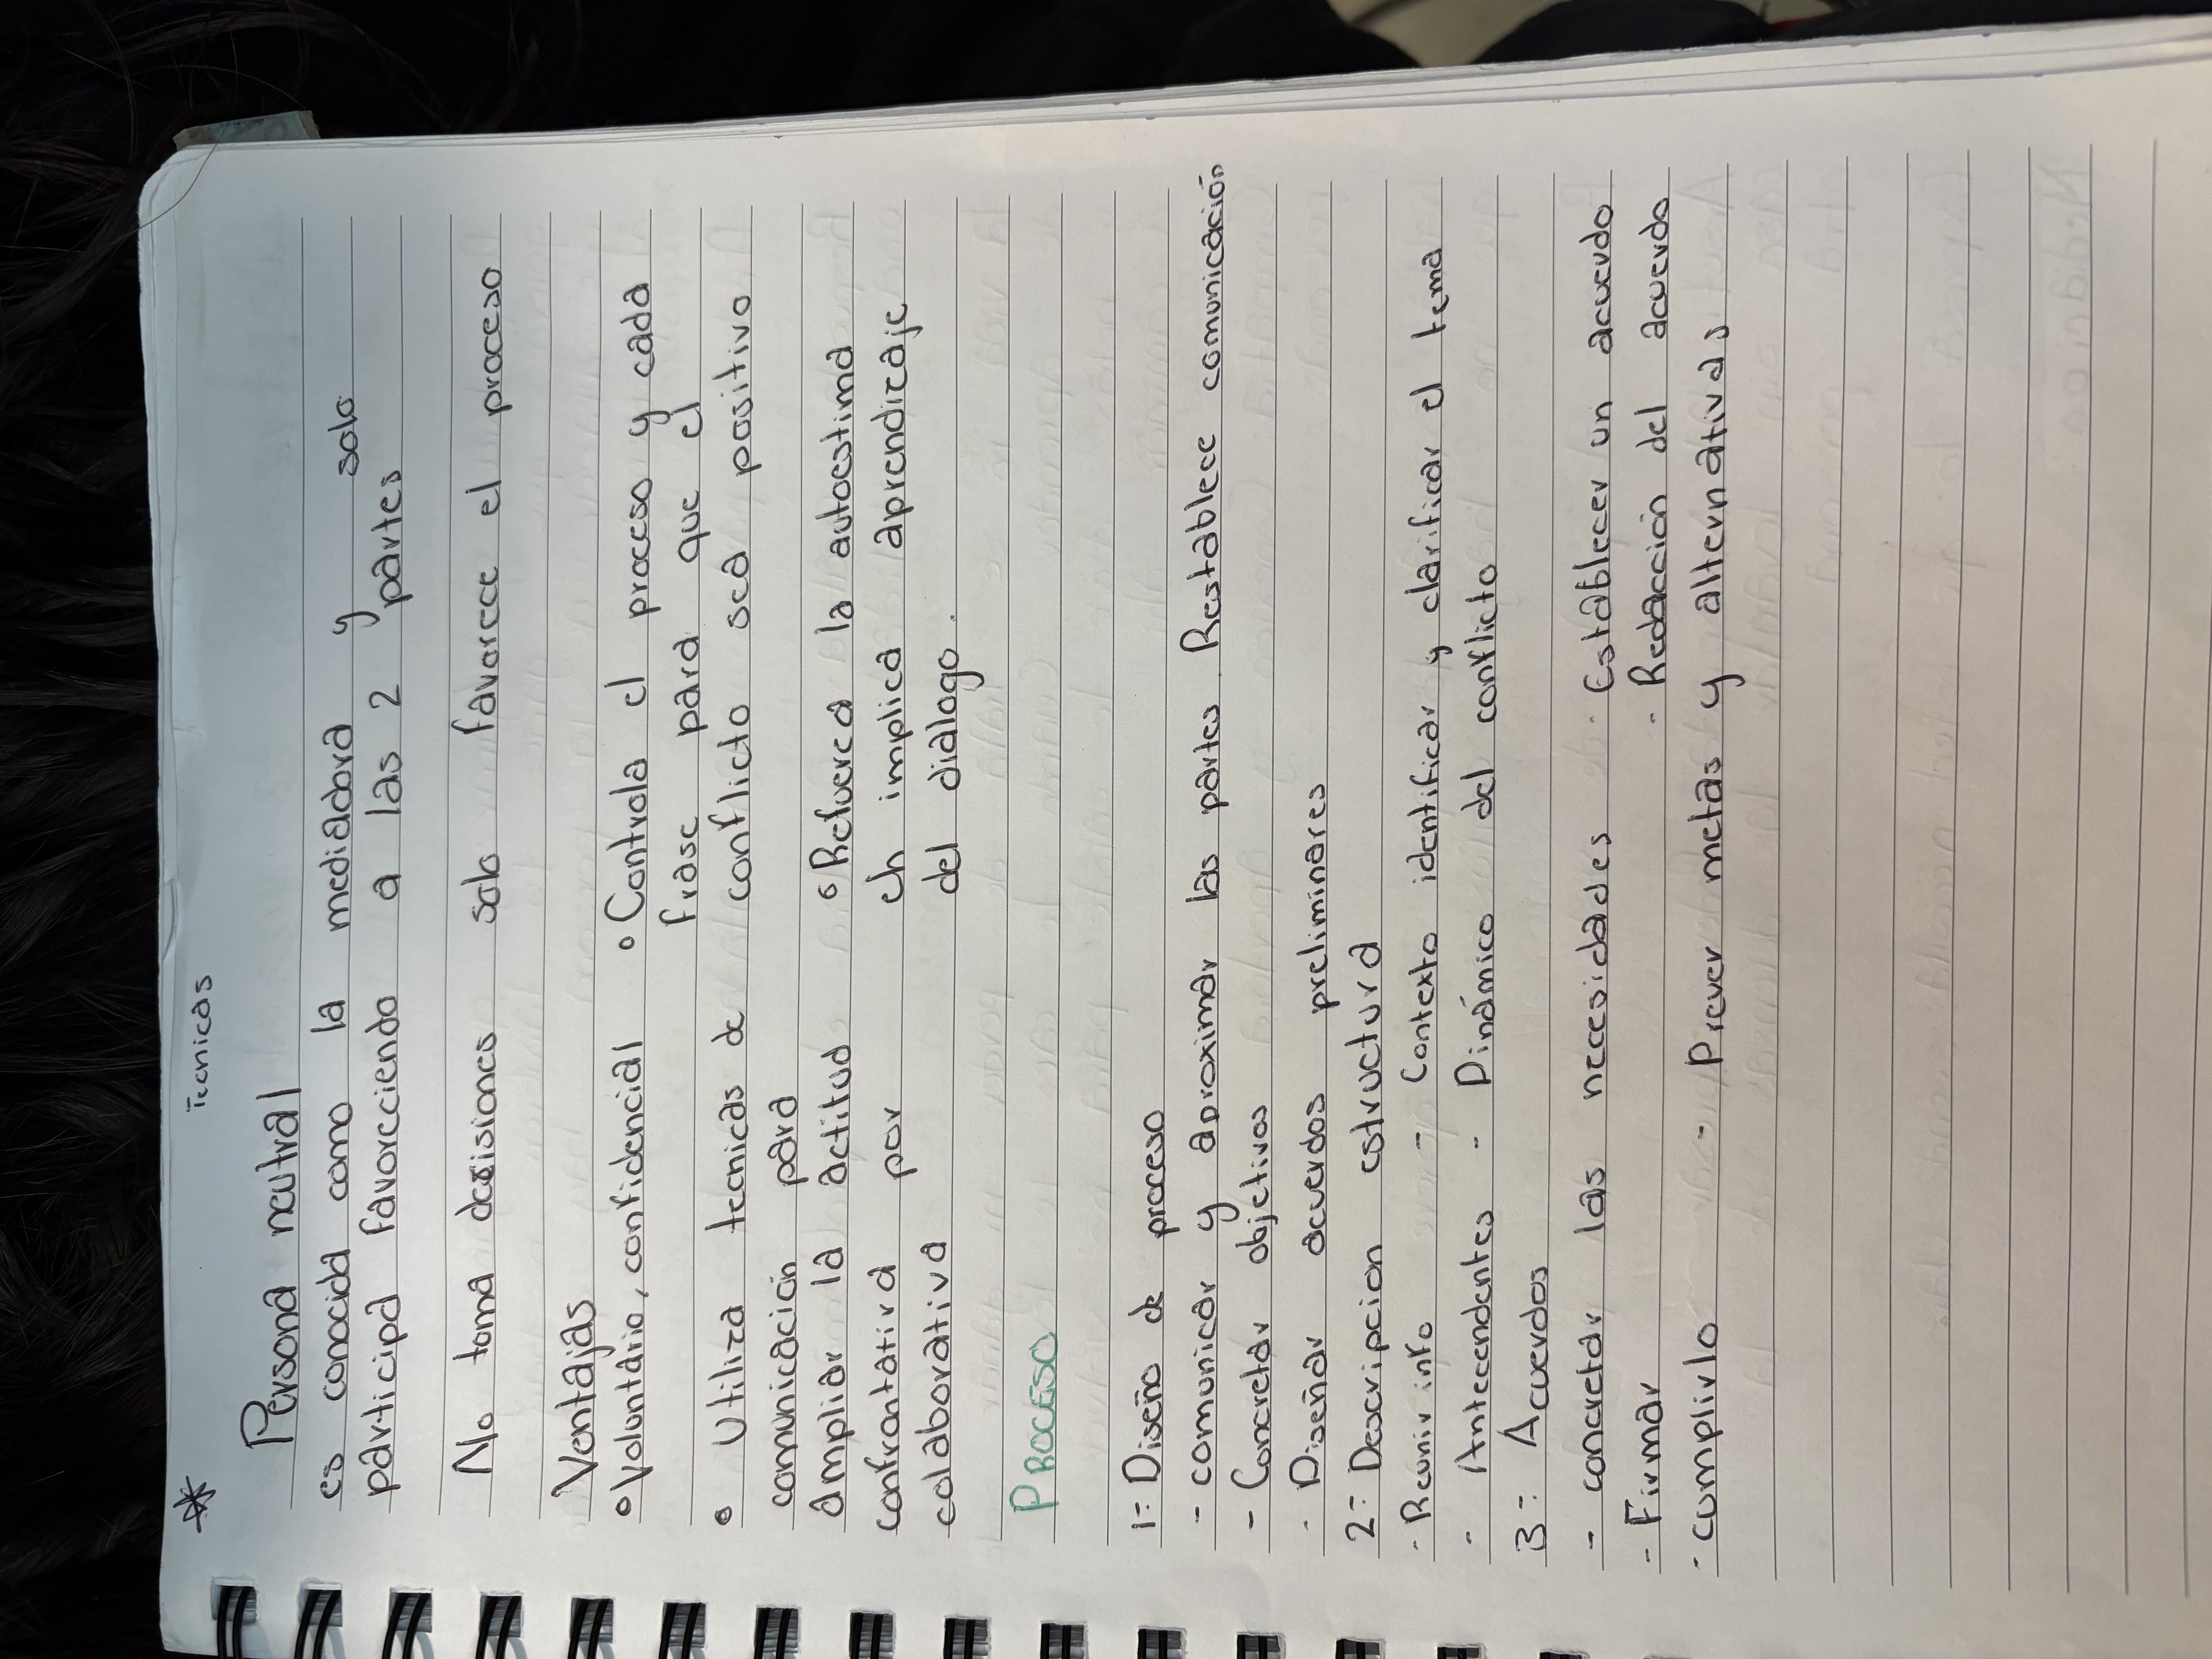 Tecnicas
Persona neutral
es conocida como la mediadora y solo
participa favoreciendo a las 2 partes
No toma decisiones solo favorece el proceso
Ventajas
• Voluntario, confidencial
• Utiliza tecnicas de
comunicación para
ampliar la actitud
confrontativa por
colaborativa
• Controla el proceso y cada
frase para que el
conflicto sea positivo
• Refuerca la autoestima
eh implica aprendizaje
del dialogo.
PROCESO
1- Diseño de proceso
- comunicar y aproximar las partes. Restablece comunicación
- Concretar objetivos
- Diseñar acuerdos preliminares
2- Descripcion estructura
- Reunir info - Contexto identificar y clarificar el tema
- Antecendentes - Dinámico del conflicto
3- Acuerdos
- concretar las necesidades - Establecer un acuerdo
- Firmar - Redacción del acuerdo
- cumplirlo - Prever metas y alternativas